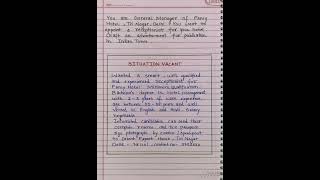 You are General Manager of Fancy
Hotel, TN Nagar, Delhi. You want to
appoint a receptionist for you hotel.
Draft an advertisement for publication
in Indian Times.
SITUATION VACANT
Wanted a smart, well qualified
and experienced receptionist for
Fancy Hotel. Minimum qualification
Bachelor's degree in hotel management
with 2-3 years of work experience,
age between 25-30 years and well
versed in English and Hindi
Interested candidates can send their
complete resume and two passport
size photographs by
to Fancy Hotel, TN Nagar
Delhi